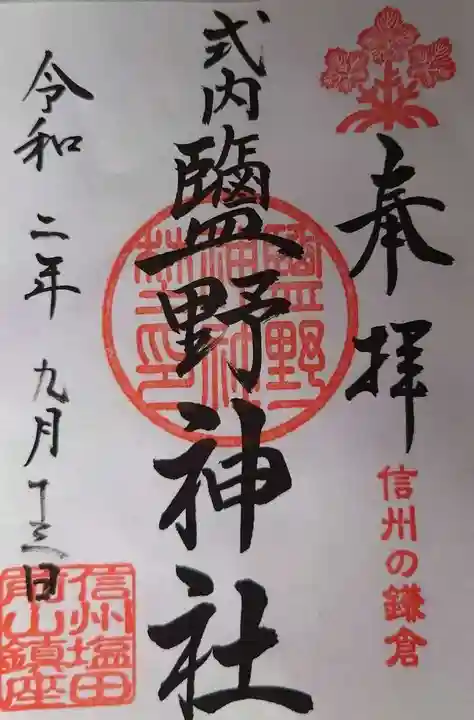 奉拝
信州の鎌倉
式内鹽野神社
鹽野神社
令和二年九月十三日
信州塩田
前山鎮座